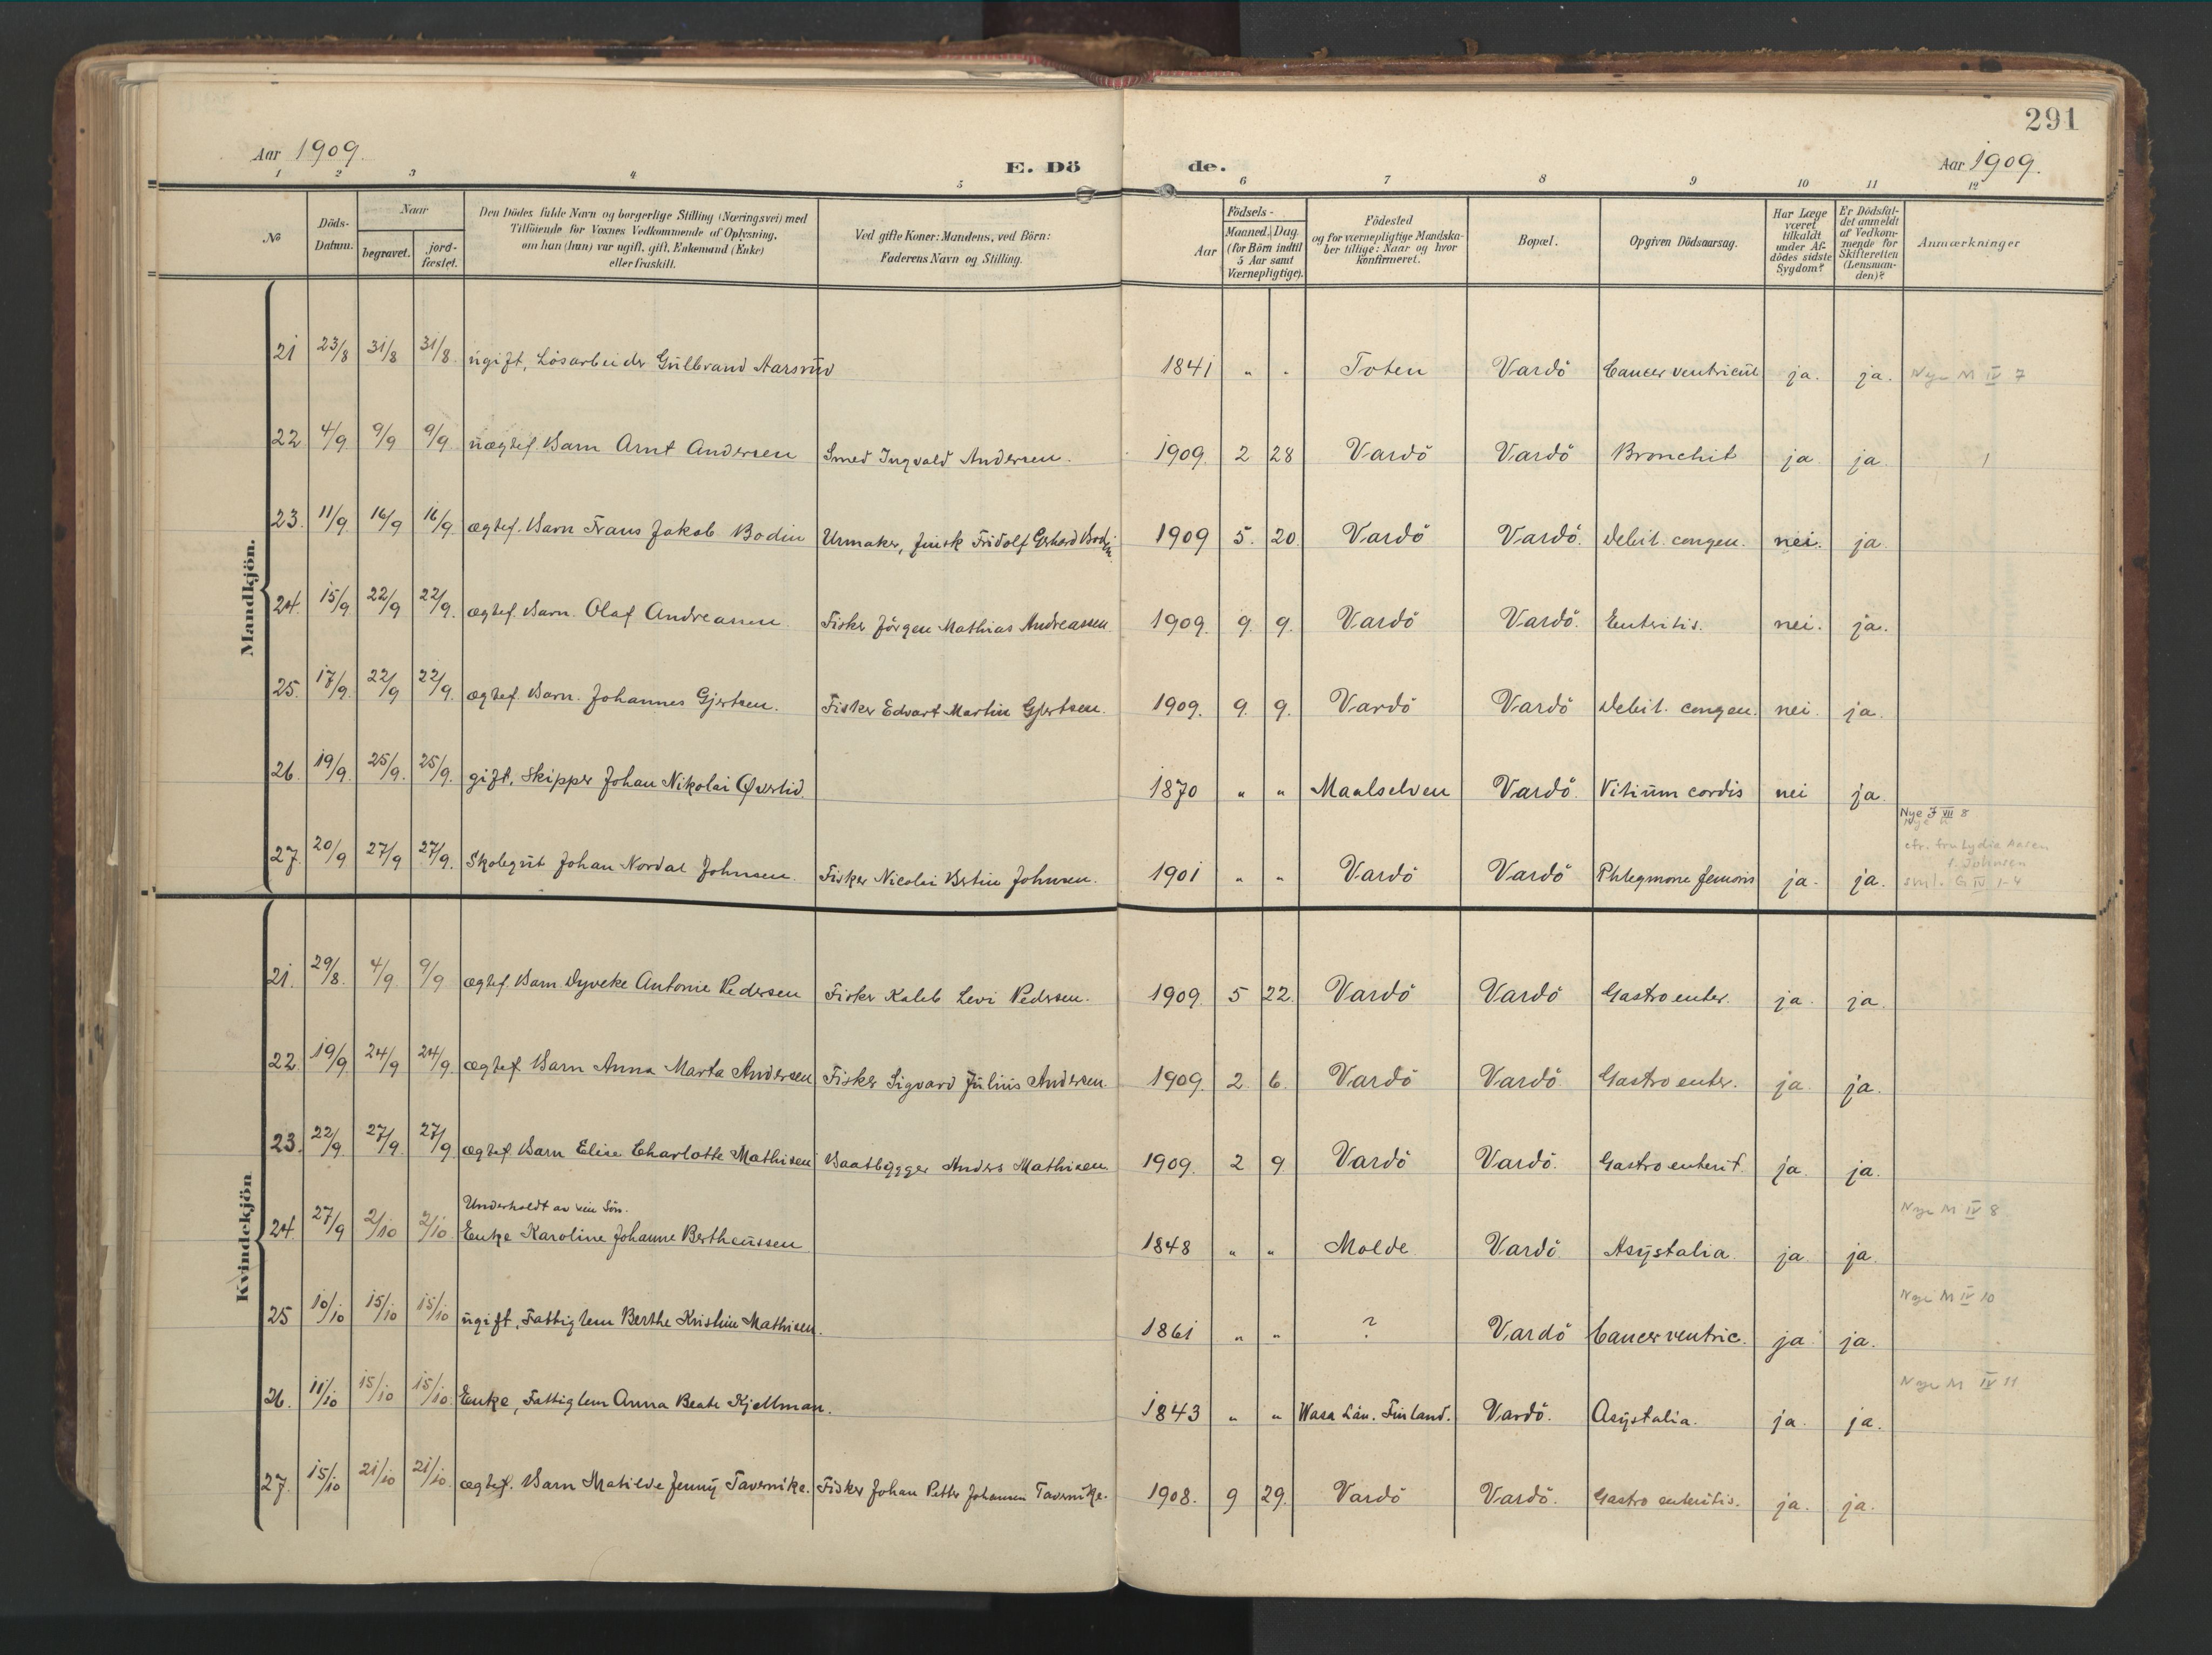 291
Aar 1909.
E. Dö de.
Aar 1909.
1 2 3 4 5 6 7 8 9 10 11 12
No
Döds-Datum.
Naar
begravet.
jord-fæstet.
Den Dödes fulde Navn og borgerlige Stilling (Næringsvei) med
Tilföiende for Voxnes Vedkommende af Oplysning,
om han (hun) var ugift, gift, Enkemand (Enke)
eller fraskilt.
Ved gifte Koner: Mandens, ved Börn:
Faderens Navn og Stilling.
Födsels-
Aar
Maaned. Dag.
(for Börn indtil
5 Aar samt
Værnepligtige).
Födested
og for værnepligtige Mandska-
ber tillige: Naar og hvor
konfirmeret.
Bopæl.
Opgiven Dödsaarsag.
Har Læge
været
tilkaldt
under Af-
dödes sidste
Sygdom?
Er Dödsfal-
det anmeldt
af Vedkom-
mende for
Skifteretten
(Lensman-
den)?
Anmærkninger
Mandkjön.
21 23/8 31/8 31/8 ugift, Lösarbeider Gulbrand Aarsrud 1841 " " Toten Vardö Cancer ventricul ja. ja. Nye M IV 7
22 4/9 9/9 9/9 uægtef. Barn Arnt Andersen Smed Ingvald Andersen. 1909. 2 28 Vardö Vardö Bronchit ja ja. 1
23. 11/9 16/9 16/9 ægtef. Barn Frans Jakob Bodin Urmaker, finsk Fridolf Gerhard Bodin 1909 5. 20. Vardö Vardö. Debil. congen. nei. ja.
24. 15/9 22/9 22/9. ægtef. Barn. Olaf Andreassen. Fisker Jörgen Mathias Andreassen. 1909. 9. 9. Vardö Vardö. Enteritis. nei. ja.
25. 17/9. 22/9 22/9. ægtef. Barn. Johannes Gjertsen. Fisker Edvart Martin Gjertsen. 1909. 9. 9. Vardö Vardö Debil. congen. nei. ja.
26. 19/9. 25/9. 25/9. gift, Skipper Johan Nikolai Qverlid. 1870 " " Maalselven Vardö. Vitium cordis nei ja.
Nye J VII 8
27. 20/9 27/9 27/9. Skolegut Johan Nordal Johnsen. Fisker Nicolai Bertin Johnsen. 1901 " " Vardö Vardö Phlegmone femoris ja. ja.
cfr. fru Lydia Aasen
f. Johnsen
sml. G IV 1-4
Kvindekjön
21. 29/8. 4/9 9/9 ægtef. Barn Dyveke Antonie Pedersen Fisker Kaleb Levi Pedersen. 1909. 5 22. Vardö Vardö Gastroenter. ja. ja.
22. 19/9 24/9 24/9. ægtef Barn Anna Marta Andersen Fisker Sigvard Julius Andersen. 1909. 2. 6. Vardö Vardö. Gastroenter. ja. ja.
23. 22/9. 27/9. 27/9 ægtef Barn Elise Charlotte Mathisen Baatbygger Anders Mathisen. 1909. 2 9 Vardö Vardö. Gastroenterit. ja. ja.
Underholdt av sin Sön.
Nye M IV 8
24. 27/9 2/10 2/10 Enke Karoline Johanne Bertheussen 1848 " " Molde Vardö. Asystalia. ja. ja.
Nye M IV 10
25 10/10 15/10 15/10 ugift, Fattiglem Berthe Kristine Mathisen. 1861 " " ? Vardö Cancer ventric. ja. ja.
Nye M IV 11
26. 11/10 15/10 15/10. Enke, Fattiglem Anna Beate Kjellman. 1843 " " Wasa Län. Finland. Vardö. Asystalia. ja. ja.
27. 15/10 21/10 21/10. ægtef. Barn Matilde Jenny Tavernike. Fisker Johan Petter Johansen Tavernike. 1908. 9 29. Vardö Vardö. Gastro enteritis. ja. ja.